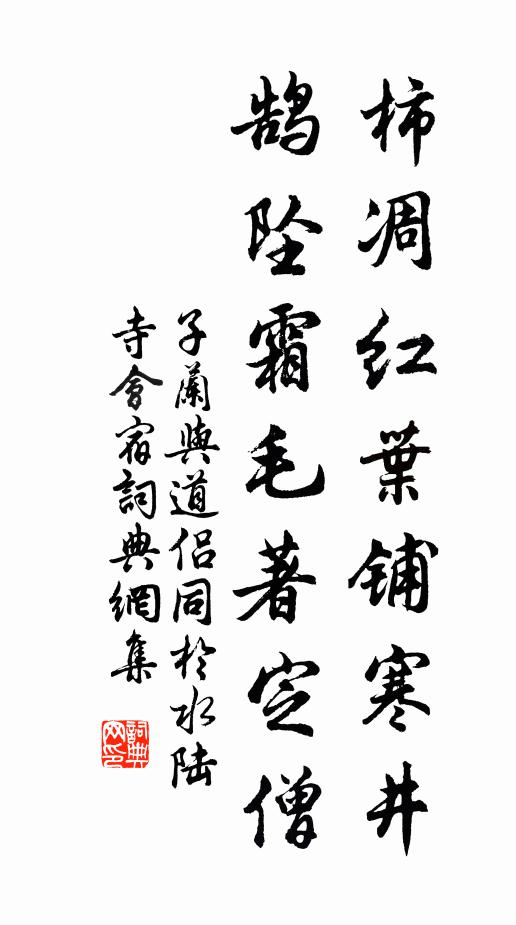 柿凋红葉铺寒井
鹄坠霜毛著定僧
子蘭與道侣同於水陆
寺會宿詞典網集
詞典
网印